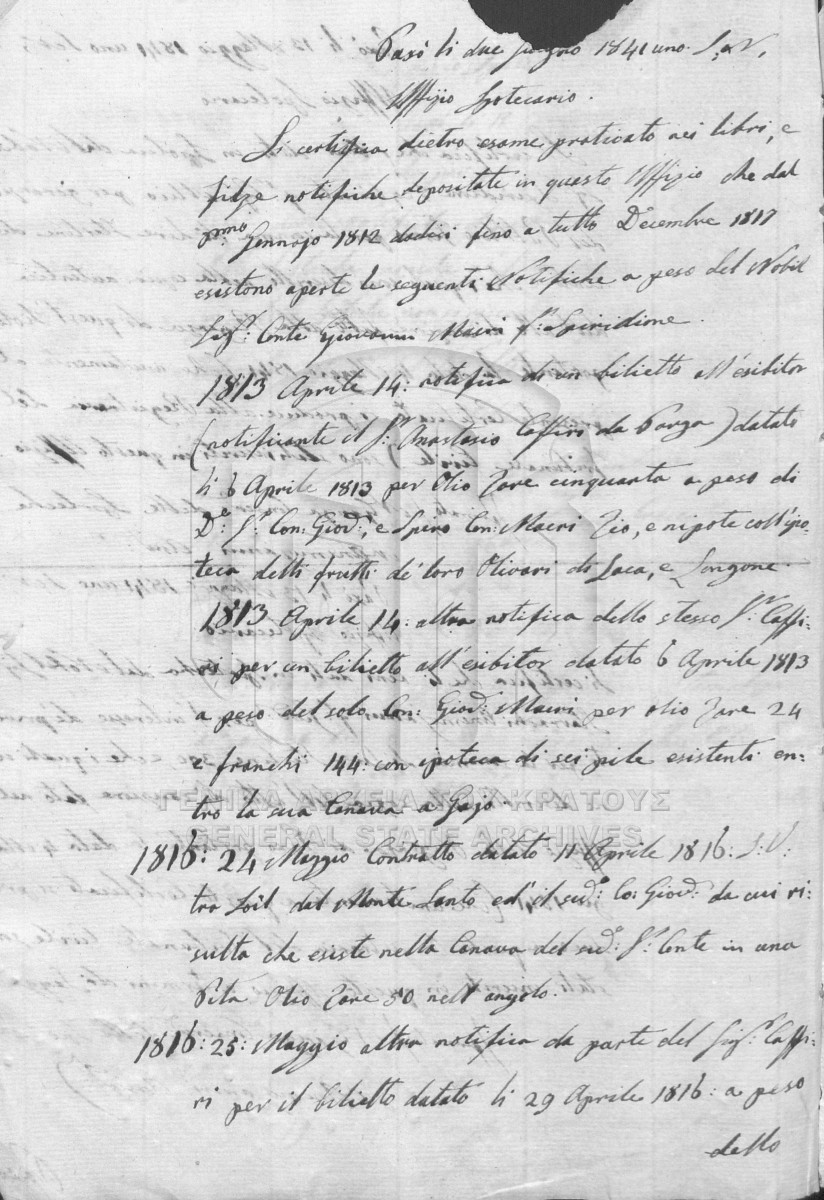 Paxò li due giugno 1841 uno. S. V.
Uffizio Ipotecario.
Si certifica dietro esame praticato nei libri, e
filze notifiche depositate in questo Uffizio che dal
pmo Gennajo 1812 dodici fino a tutto Decembre 1817
esistono aperte le seguenti Notifiche a peso del Nobil
Sigr: Conte Giovanni Macri fu: Spiridione.
1813 Aprile 14: notifica di un bilietto all'esibitor
(notificante il Sr: Anastasio Caffiri da Parga) datato
li 6 Aprile 1813 per Olio Zare cinquanta a peso di
De: Sr: Con: Giov:, e Spiro Con: Macri Zio, e nipote coll'ipo-
teca delli frutti de' loro Olivari di Laca, e Longone.
1813 Aprile 14: altra notifica dello stesso Sr: Caffi-
ri per un bilietto all'esibitor datato 6 Aprile 1813
a peso del solo Con: Giov: Macri per olio Zare 24
e franchi 144: con ipoteca di sei pile esistenti en-
tro la sua Canava a Gajo
1816: 24 Maggio Contratto datato 11 Aprile 1816: S: V:
tra dal Monte Santo ed il sud: Co: Giov: da cui ri-
sulta che esiste nella Canava del sud: Sr: Conte in una
Pila Olio Zare 50 nell'angolo.
1816: 25: Maggio altra notifica da parte del Sigr: Caffi-
ri per il bilietto datato li 29 Aprile 1816: a peso
dello
ΓΕΝΙΚΑ ΑΡΧΕΙΑ ΤΟΥ ΚΡΑΤΟΥΣ
GENERAL STATE ARCHIVES